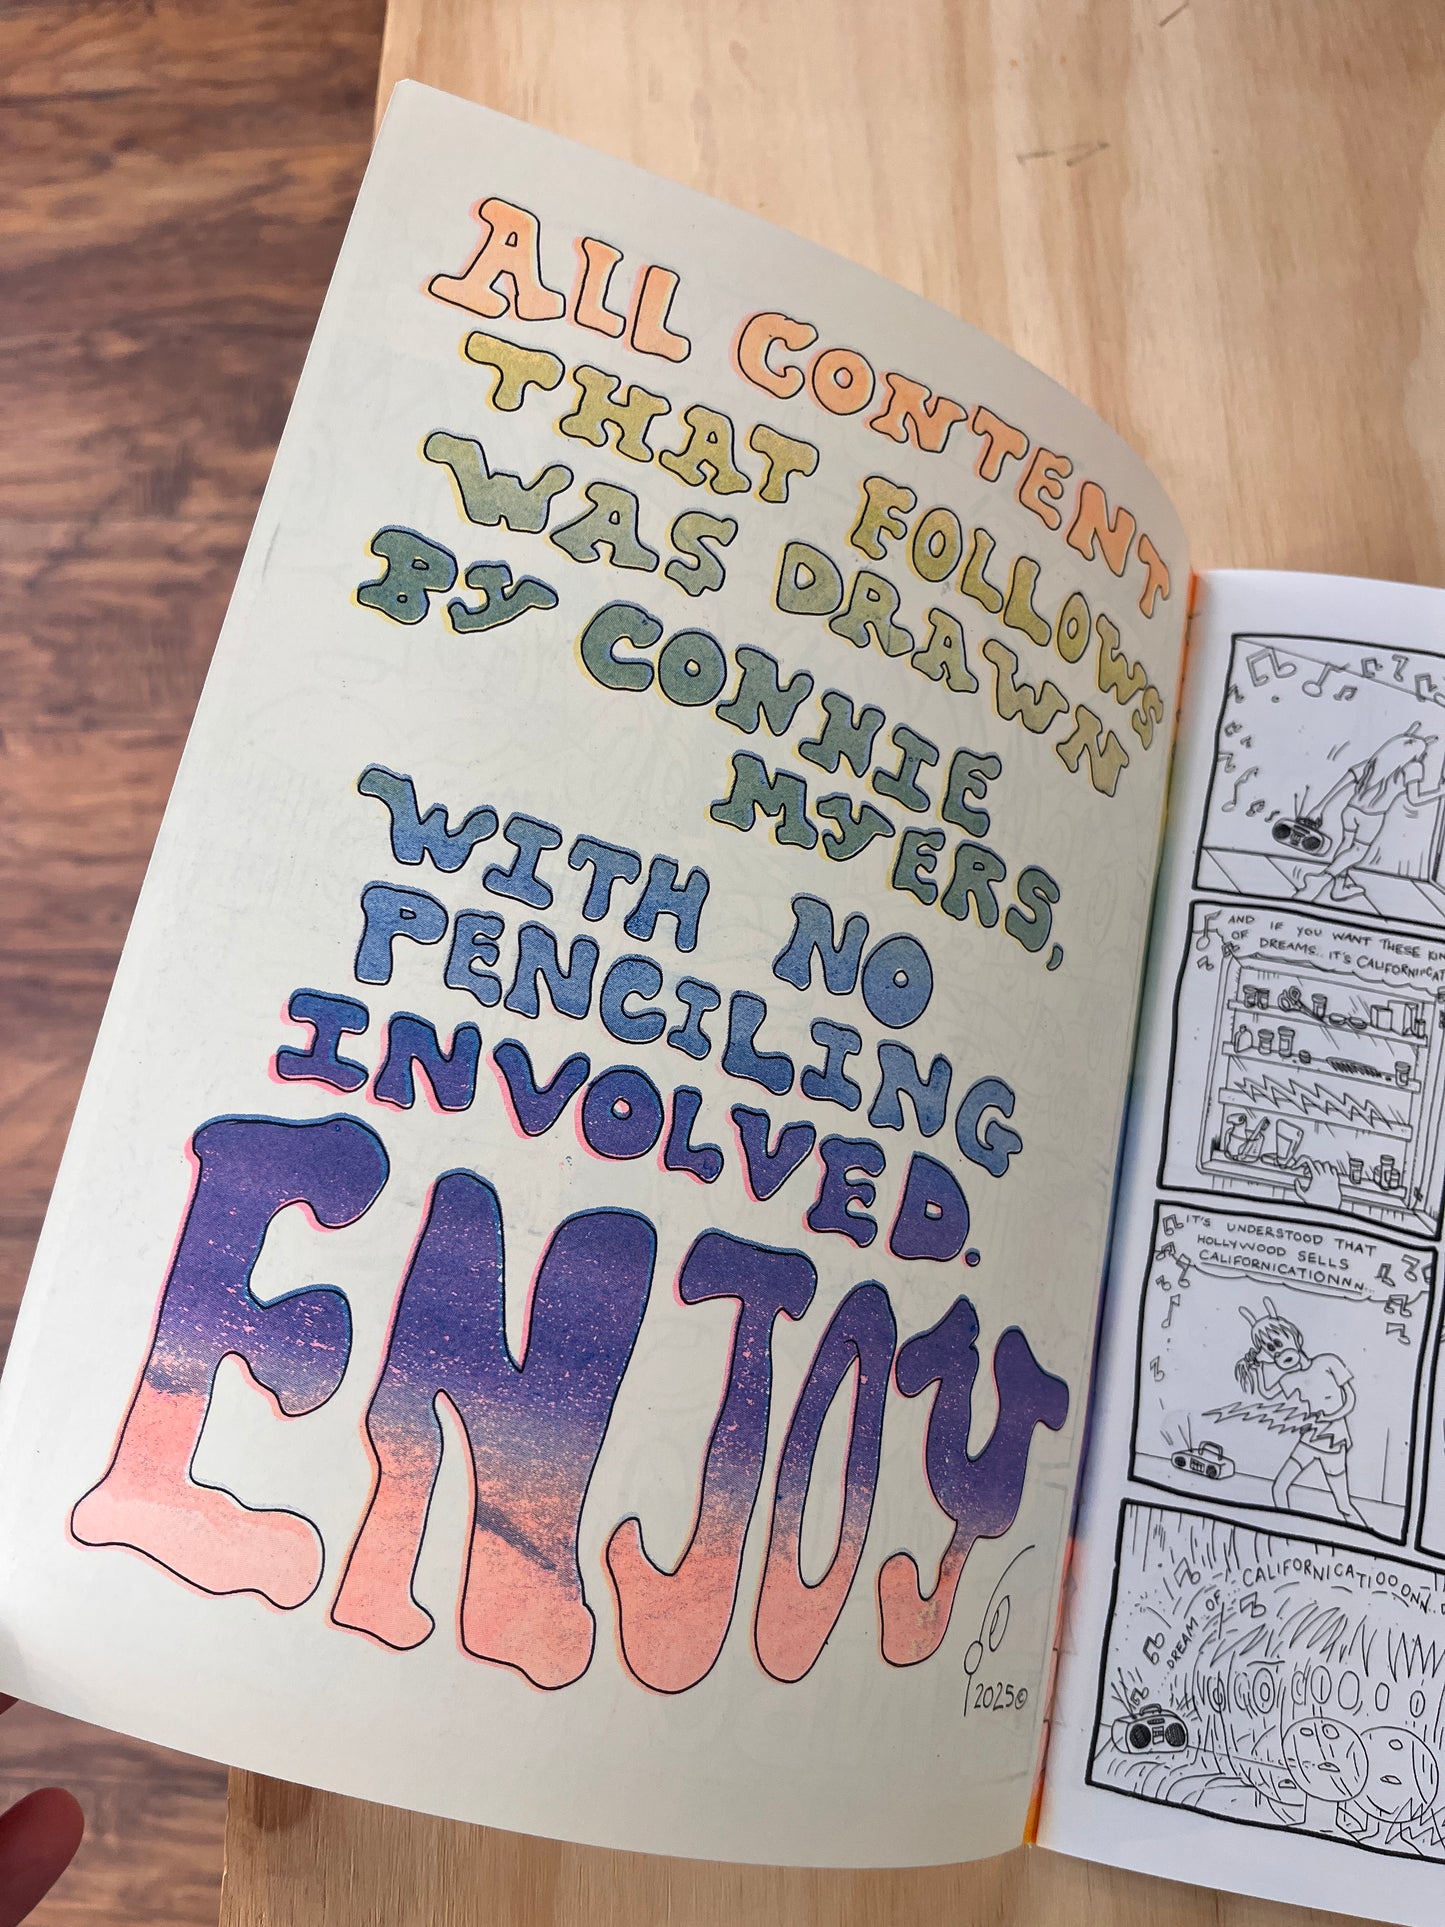 ALL CONTENT
THAT FOLLOWS
WAS DRAWN
BY CONNIE
MYERS,
WITH NO
PENCILING
INVOLVED.
ENJOY
2025©
AND IF YOU WANT THESE KIN
OF DREAMS.. IT'S CALIFORNICAT
IT'S UNDERSTOOD THAT
HOLLYWOOD SELLS
CALIFORNICATIONNN..
CALIFORNICATIOOONNN..
DREAM OF